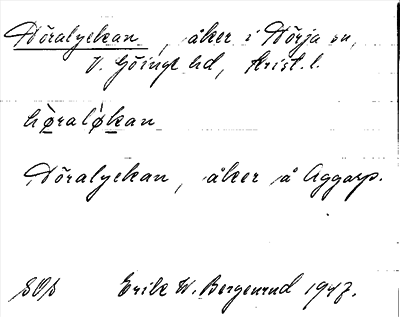 Höralyckan, åker i Hörja sn,
V. Göinge hd, Krist. l.
hø̀ralø̀kan
Höralyckan, åker å Aggarp.
SOS Erik W. Bergenrud 1947.